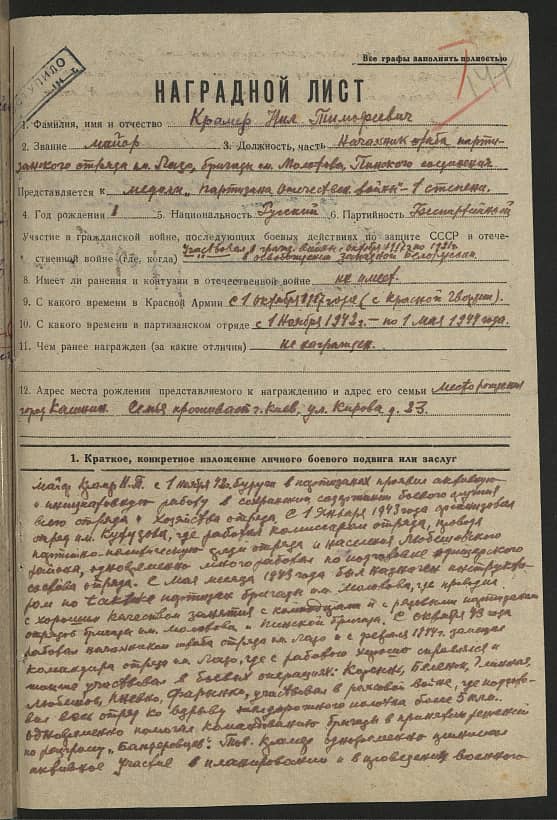 СТУПИЛО
Все графы заполнять полностью
147
НАГРАДНОЙ ЛИСТ
1. Фамилия, имя и отчество Крамер Нил Тимофеевич
2. Звание майор 3. Должность, часть Начальник штаба парти-
занского отряда им. Лазо, бригады им. Молотова, Пинского соединения
Представляется к медали "партизана отечествен. войны" 1 степени.
4. Год рождения 5. Национальность Русский 6. Партийность Беспартийный
Участие в гражданской войне, последующих боевых действиях по защите СССР и отече-
ственной войне (где, когда) участвовал в гражд. войны с октября 1917 по 1921г.
в освобождении западной Белоруссии.
8. Имеет ли ранения и контузии в отечественной войне не имеет.
9. С какого времени в Красной Армии с 1 октября 1917 года (с Красной Гвардии).
10. С какого времени в партизанском отряде с 1 Ноября 1942 г. — по 1 мая 1944 года.
11. Чем ранее награжден (за какие отличия) не награжден.
12. Адрес места рождения представляемого к награждению и адрес его семьи место рождения
город Калинин. Семья проживает г. Киев, ул. Кирова д. 33.
1. Краткое, конкретное изложение личного боевого подвига или заслуг
Майор Крамер Н.Т. с 1 ноября 42г. будучи в партизанах проявил активную
и инициативную работу в сохранении содержании боевого
всего отряда и хозяйства отряда. С 1 января 1943 года организовал
отряд им. Кутузова, где работал комиссаром отряда, проводя
партийно-политическую среди отряда и населения Любешовского
района, одновременно много работал по подготовке офицерского
состава отряда. С мая месяца 1943 года был назначен инструкто-
ром по тактике партизан бригады им. Молотова, где проводил
с хорошим качеством занятия с командирами и с рядовыми партизанами
отрядов бригады им. Молотова и Пинской бригады. С октября 43 года
работал начальником штаба отряда им. Лазо и с февраля 1944г. замещал
командира отряда им. Лазо, где с работой хорошо справлялся и
участвовал в боевых операциях:
Любешов, участвовал в рельсовой войне, где
вел весь отряд ко взрыву железнодорожного полотна более 5 клм.
Одновременно помогал командованию бригады в принятии решений
по разгрому "Бандеровцев". Тов. Крамер одновременно принимал
активное участие в планировании и в проведении военного